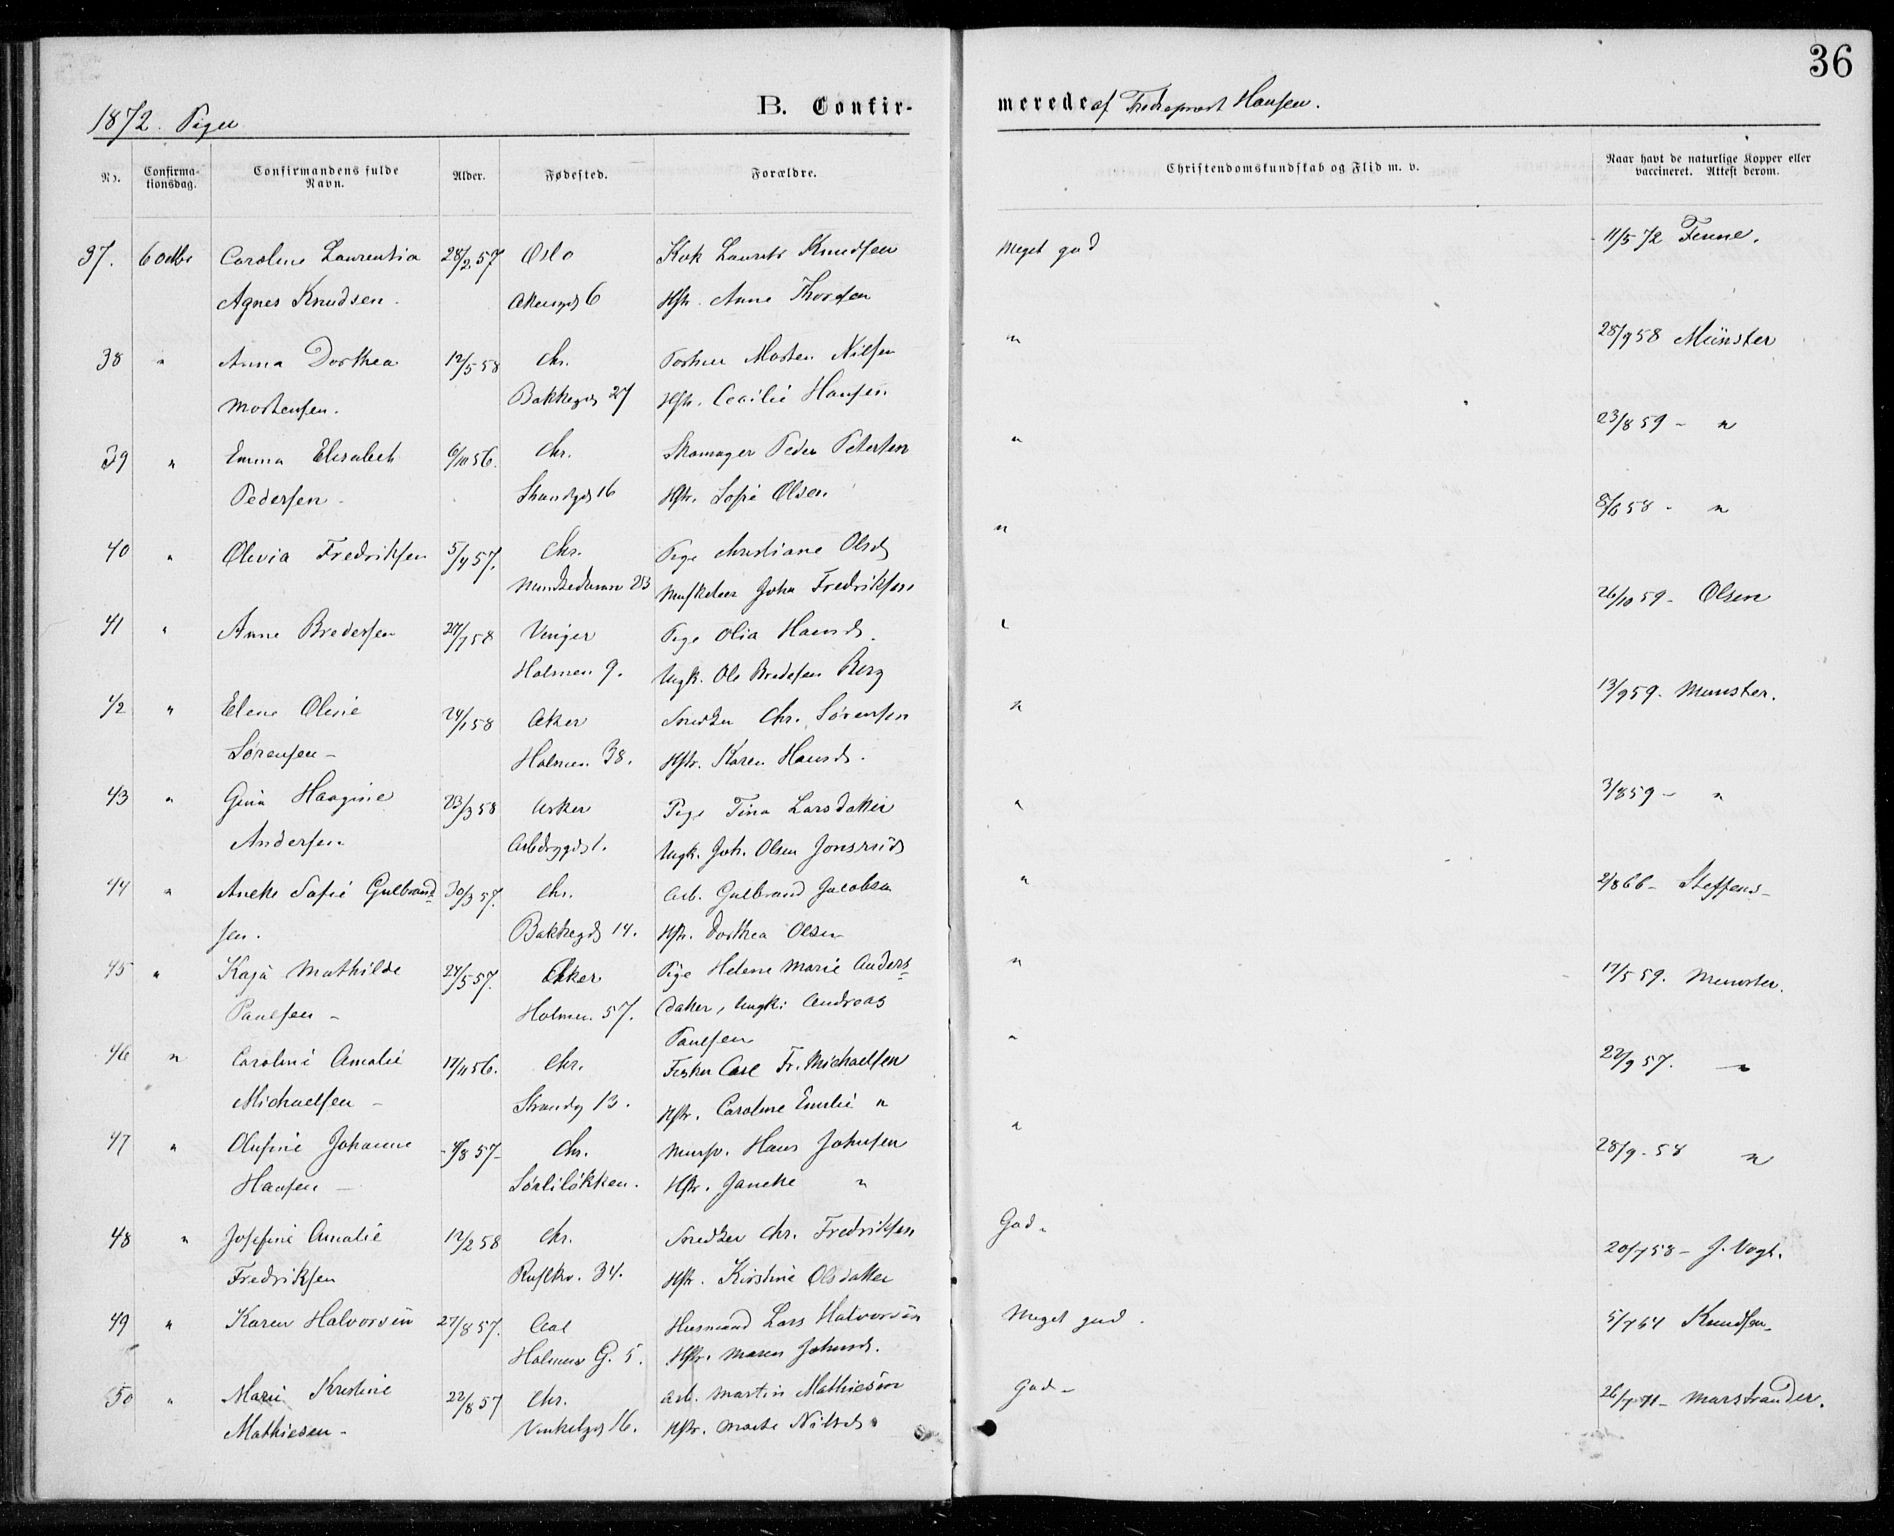 36
1872. Piger
B. Confir-
merede af Fredsprest Hansen.
No.
Confirma-
tionsdag.
Confirmandens fulde
Navn.
Alder.
Fødested.
Forældre.
Christendomskundskab og Flid m. v.
Naar havt de naturlige Kopper eller
vaccineret. Attest derom.
37. 6 octbr Caroline Laurentia 28/2 57 Oslo Kok Laurits Knudsen Meget god 11/5 72
Agnes Knudsen. 6 Hstr. Anne Thoresen
38 " Anna Dorthea 12/5 58 Chr. Morten Nilsen " 28/9 58 Münster
Mortensen. Bakkegd 27 Hstr. Cecilie Hansen
39 " Emma Elisabeth 6/10 56. Chr. Skomager Peder Petersen " 23/8 59 - "
Pedersen - Strandgd 16 Hstr. Sofie Olsen
40 " Olivia Fredriksen 5/4 57. Chr. Pige Christiane Olsd " 8/6 58 - "
Munkedamm 23 Musketeer Johan Fredriksen
41 " Anne Bredesen 27/7 58 Vinger Pige Olia Hansd. " 26/10 59 - Olsen
Holmen 9. Ungk. Ole Bredesen Berg
42 " Elene Oline 24/1 58 Aker Snedker Chr. Sørensen " 13/9 59. Munster.
Sørensen - Holmen 38. Hstr. Karen Hansd.
43 " Gina Haagine 23/3 58 Asker Pige Tina Larsdatter " 3/8 59 - "
Andersen 1. Ungk. Joh. Olsen Jonsrud
44 " Anette Sofie Gulbrand= 30/3 57. Chr. Arb. Gulbrand Jacobsen " 2/8 66 - Steffens -
sen. Bakkegd 14. Hstr. Dorthea Olsen
45 " Kaja Mathilde 24/5 57. Aker Pige Helene Marie Anders= " 17/5 59. Munster.
Paulsen - Holmen 57. datter, Ungk: Andreas
Paulsen
46 " Caroline Amalie 17/11 56. Chr. Fisker Carl Fr. Michaelsen " 22/9 57. "
Michaelsen - Strandg 13. Hstr. Caroline Emilie "
47 " Olufine Johanne 9/8 57 - Chr. Hans Johnsen " 28/9 - 58 "
Hansen - Sørliløkken. Hstr. Janche "
48 " Josefine Amalie 12/2 58 Chr. Snedker Chr. Fredriksen God - 20/7 58 - J. Vogt.
Fredriksen Rusløkv. 34. Hstr. Kirstine Olsdatter
49 " Karen Halvorsen 27/8 57. Aal Husmand Lars Halvorsen Meget god. 5/7 64 Knudsen -
Holmens G. 5. Hstr. Maren Johnsd.
50 " Marie Kristine 22/8 57 Chr. Arb. Martin Mathiesen God - 26/7 71 - Marstrander.
Mathiesen - Vinkelgd 16. Hstr. Marte Nilsd "